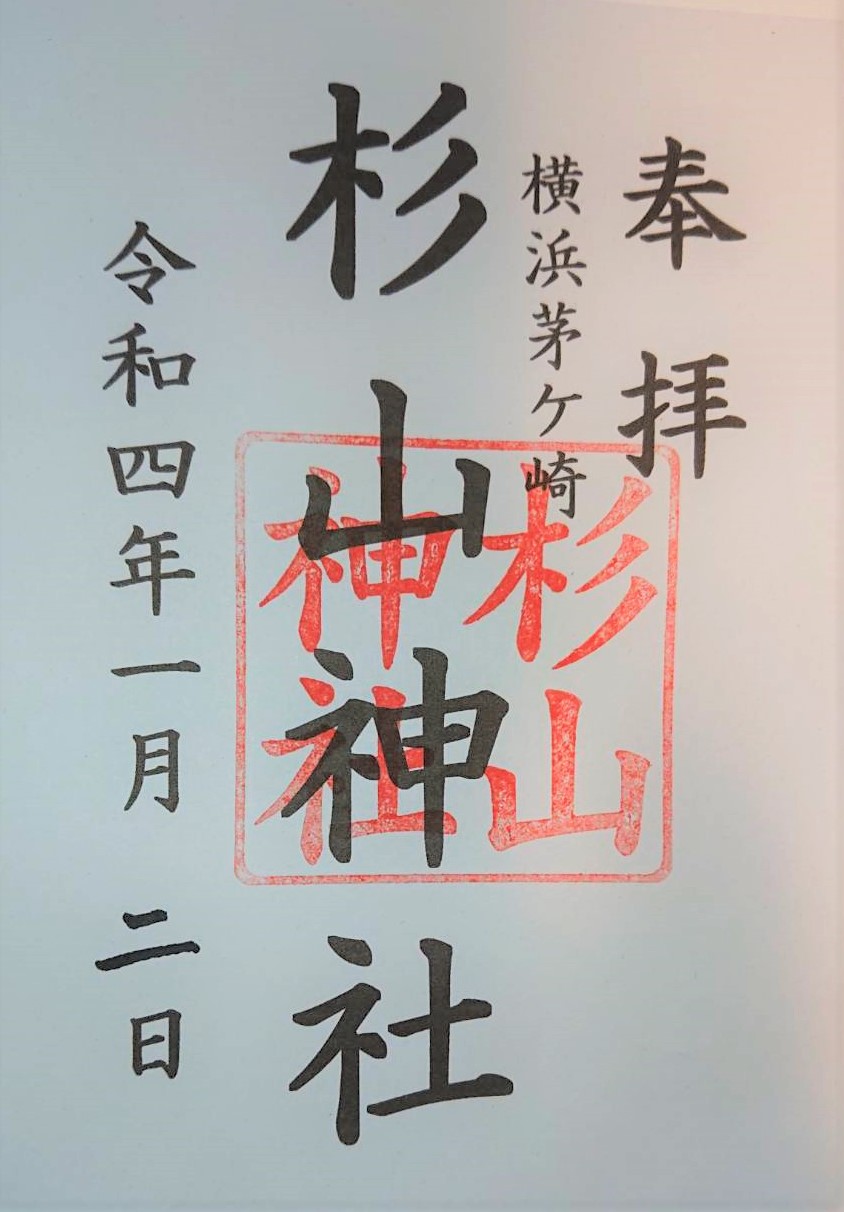 奉拝
横浜茅ケ崎
杉山神社
杉山
神社
令和四年一月二日